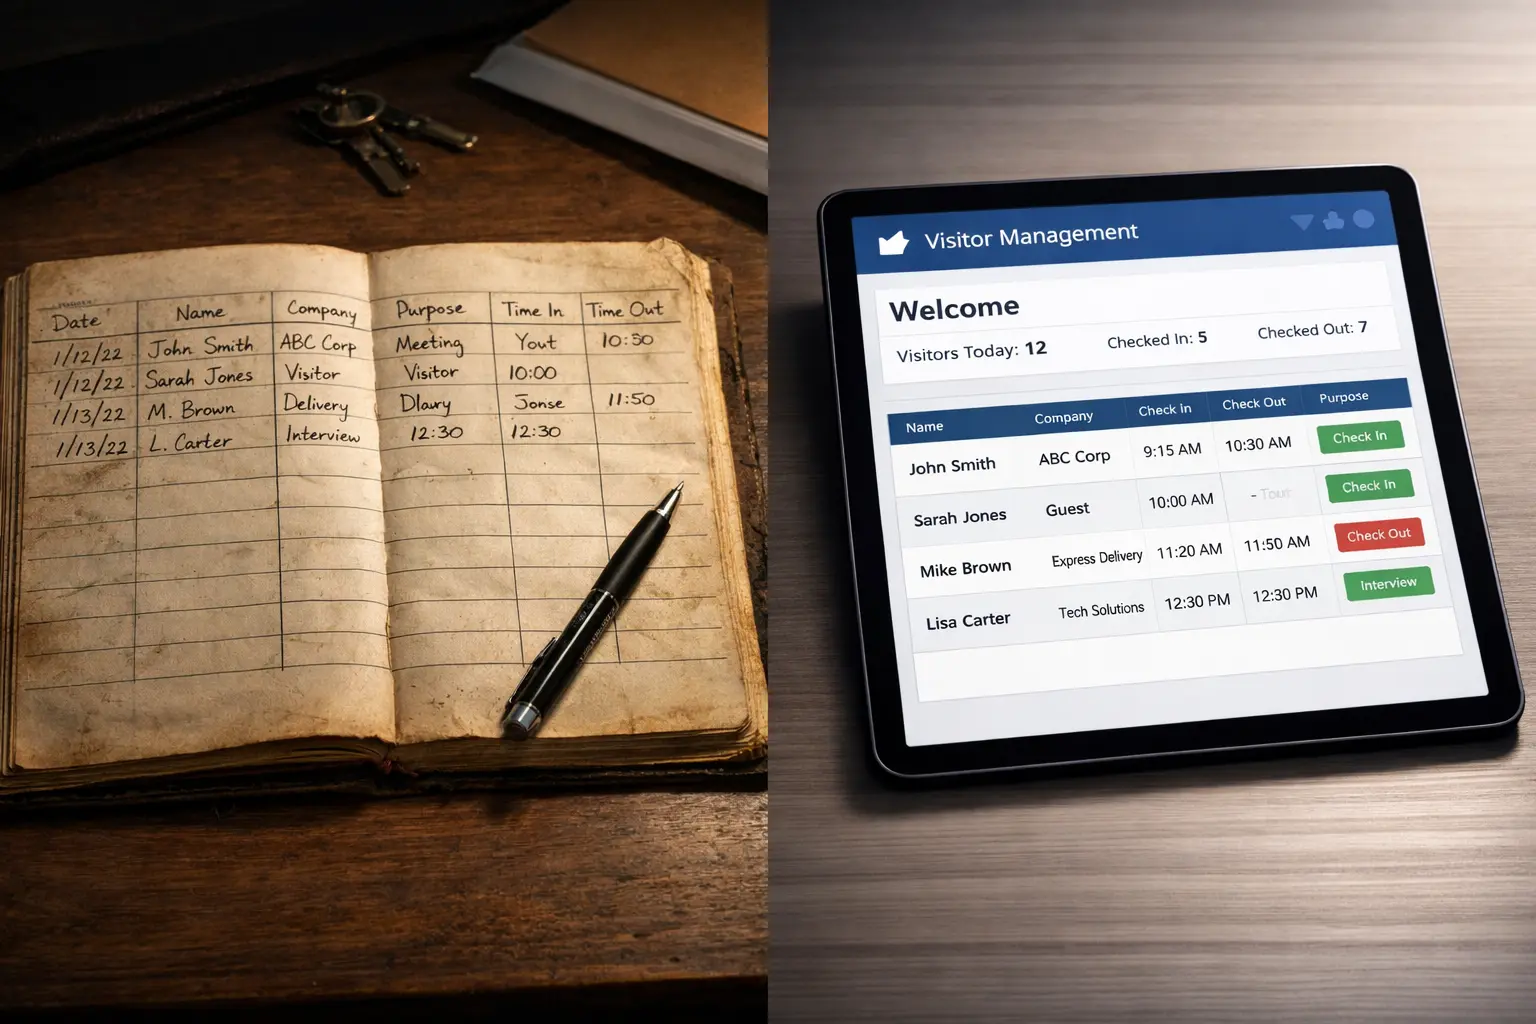 Date Name Company Purpose Time In Time Out
1/12/22 John Smith ABC Corp Meeting Yout 10:50
1/12/22 Sarah Jones Visitor Visitor 10:00
1/13/22 M. Brown Delivery Dlawy Jonse 11:50
1/13/22 L. Carter Interview 12:30 12:30
Visitor Management
Welcome
Visitors Today: 12 Checked In: 5 Checked Out: 7
Name Company Check In Check Out Purpose
John Smith ABC Corp 9:15 AM 10:30 AM Check In
Sarah Jones Guest 10:00 AM - Tout Check In
Mike Brown Express Delivery 11:20 AM 11:50 AM Check Out
Lisa Carter Tech Solutions 12:30 PM 12:30 PM Interview